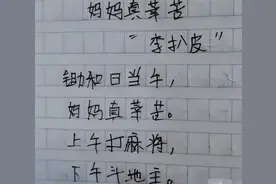 妈妈真辛苦
“李扒皮”
锄和日当午，
妈妈真辛苦。
上午打麻将，
下午斗地主。